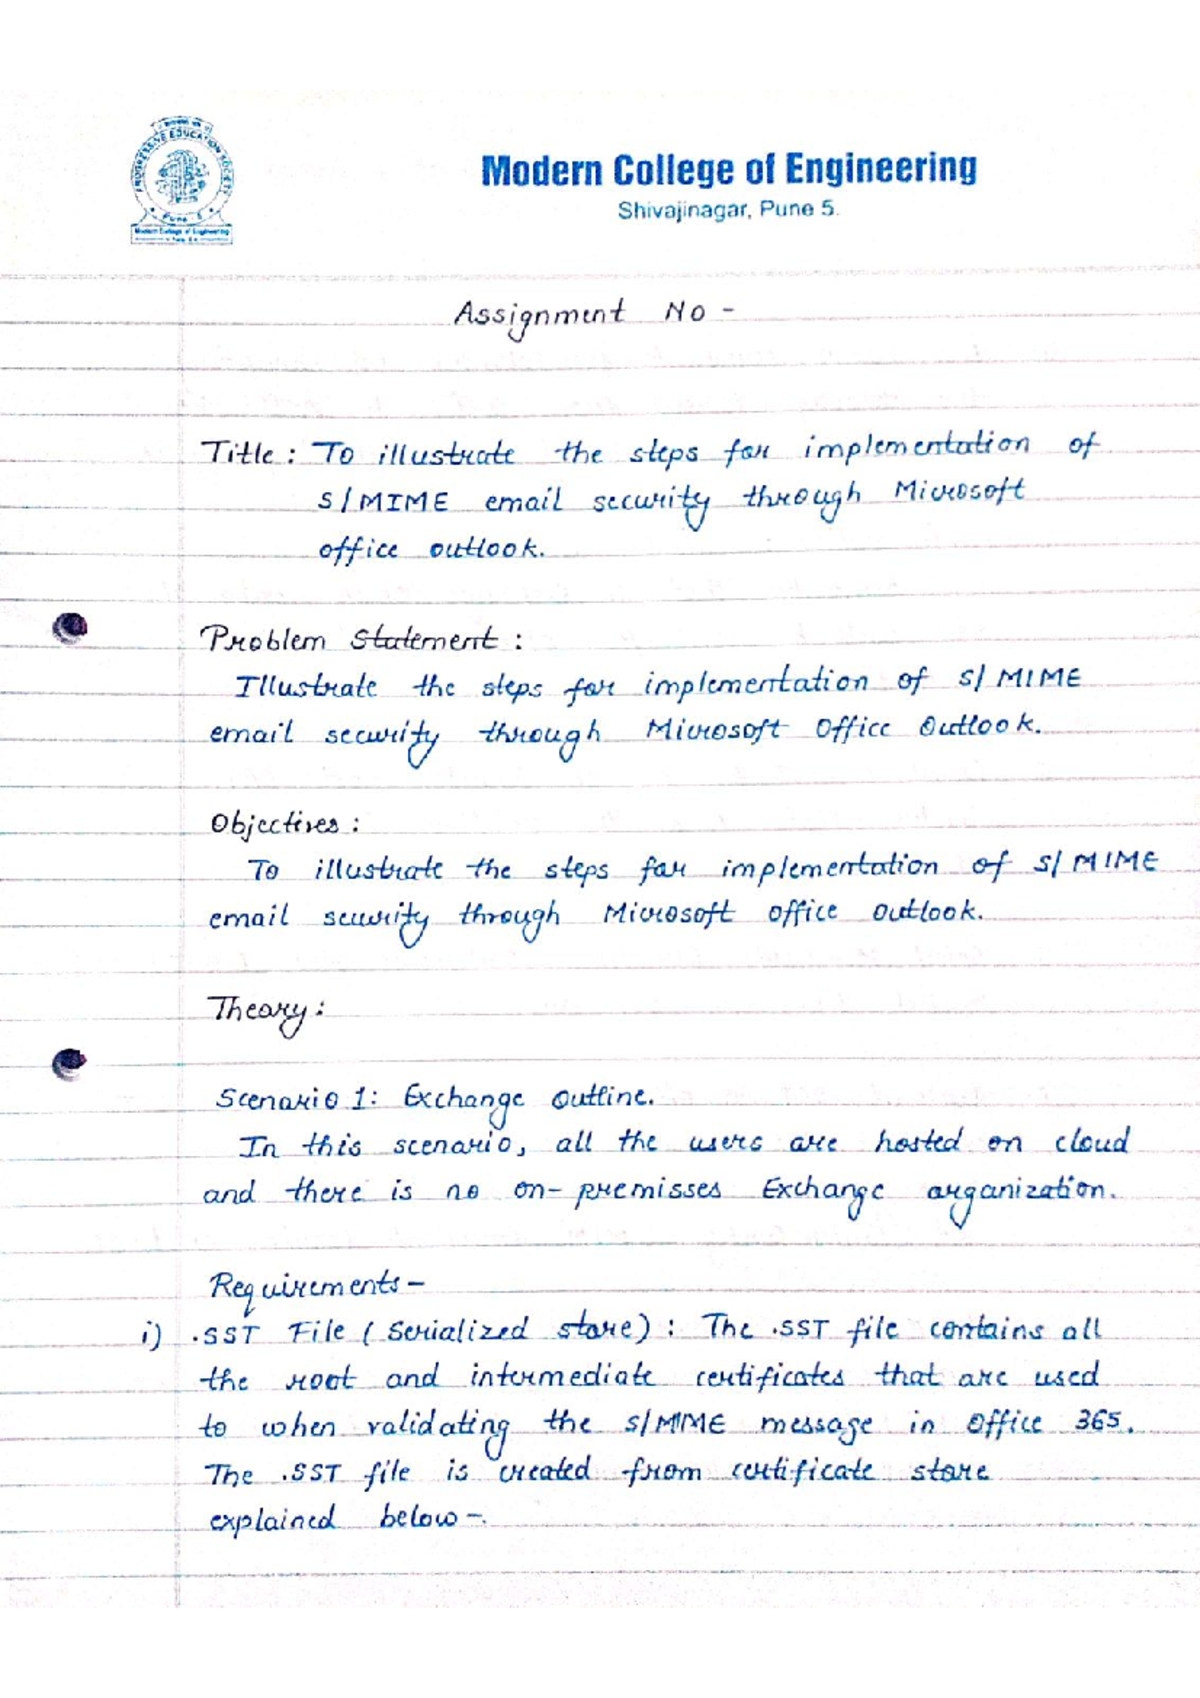 PROGRESSIVE EDUCATION SOCIETY
Pune 5
Modern College of Engineering
Modern College of Engineering
Shivajinagar, Pune 5.
Assignment No -
Title : To illustrate the steps for implementation of
S/MIME email security through Microsoft
office outlook.
Problem Statement :
Illustrate the steps for implementation of S/MIME
email security through Microsoft Office Outlook.
Objectives :
To illustrate the steps for implementation of S/MIME
email security through Microsoft office outlook.
Theory :
Scenario 1: Exchange Outline.
In this scenario, all the users are hosted on cloud
and there is no on-premisses Exchange organization.
Requirements -
i) .SST File (Serialized store) : The .SST file contains all
the root and intermediate certificates that are used
to when validating the S/MIME message in Office 365.
The .SST file is created from certificate store
explained below -.